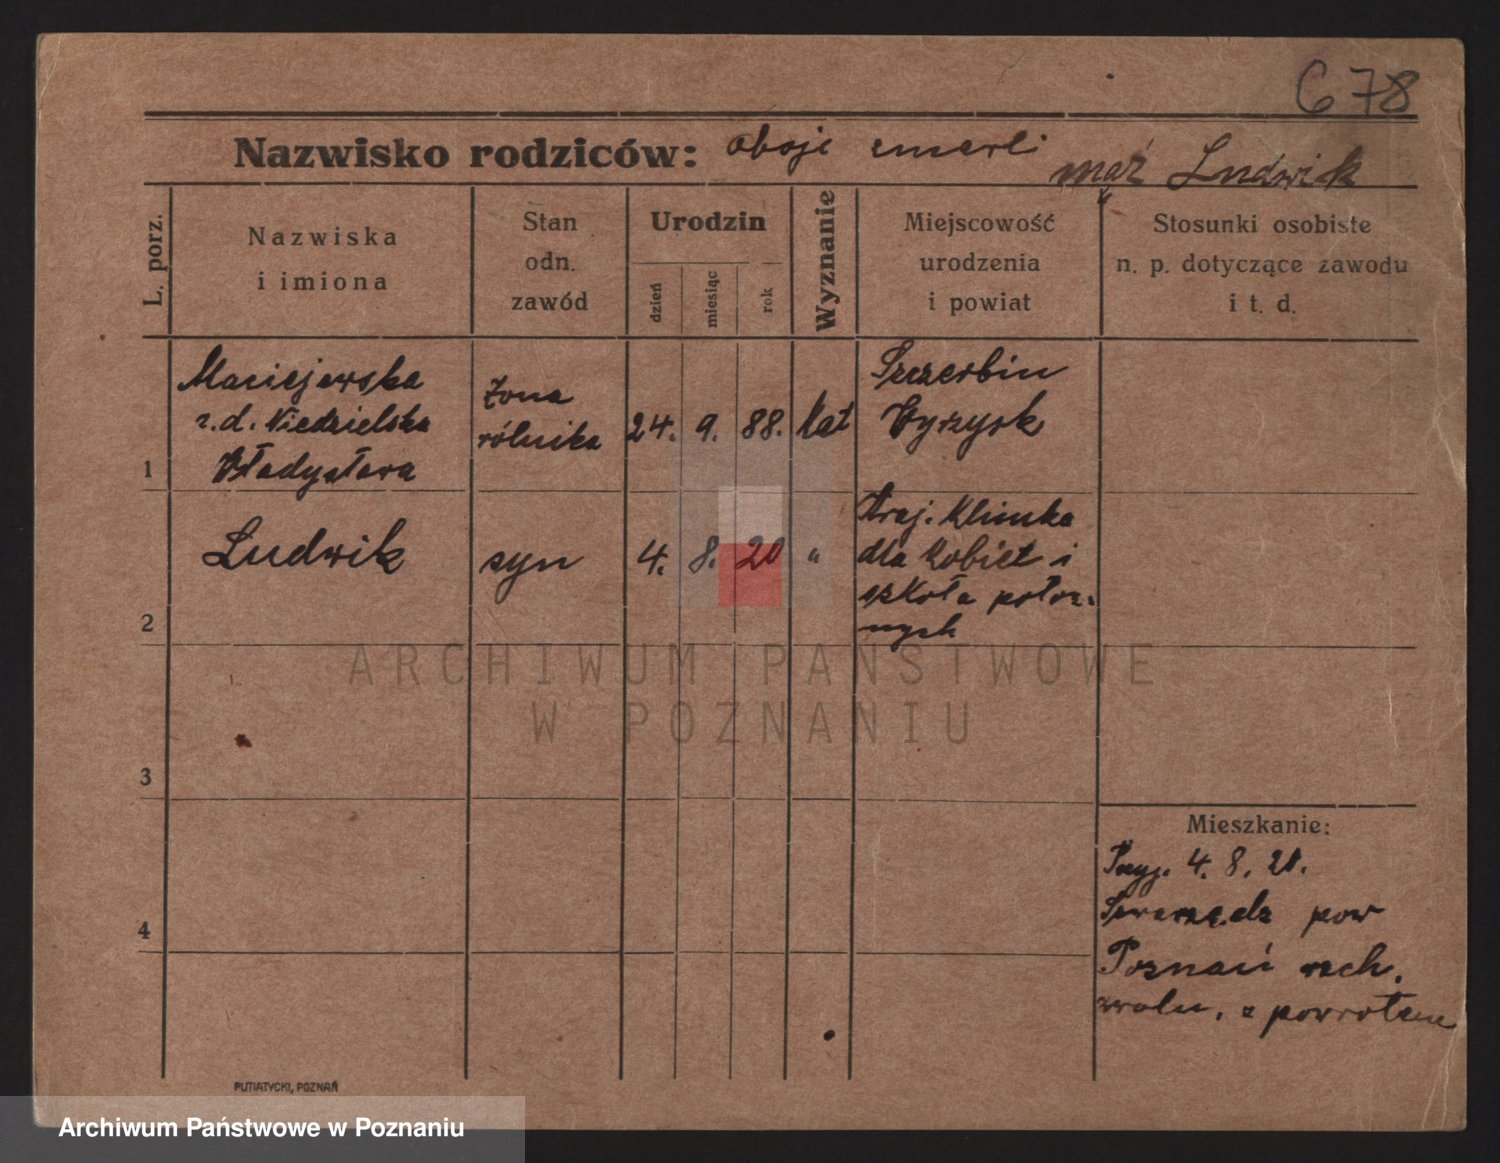 C 78
Nazwisko rodziców: oboje zmarli
mąż Ludwik
L. porz.
Nazwiska
i imiona
Stan
odn.
zawód
Urodzin
dzień
miesiąc
rok
Wyznanie
Miejscowość
urodzenia
i powiat
Stosunki osobiste
n. p. dotyczące zawodu
i t. d.
1
Maciejewska
z.d. Niedzielska
Władysława
żona
rólnika
24. 9. 88. Kat
Szczerbin
Wyrzysk
2
Ludwik
syn
4. 8. 20 "
Kraj. Klinika
dla Kobiet i
szkoła położ.
nych
3
4
Mieszkanie:
Przyj. 4. 8. 20.
Swarzędz pow
Poznań wsch.
zwoln. z powrotem
PUTIATYCKI, POZNAŃ
ARCHIWUM PAŃSTWOWE
W POZNANIU
Archiwum Państwowe w Poznaniu